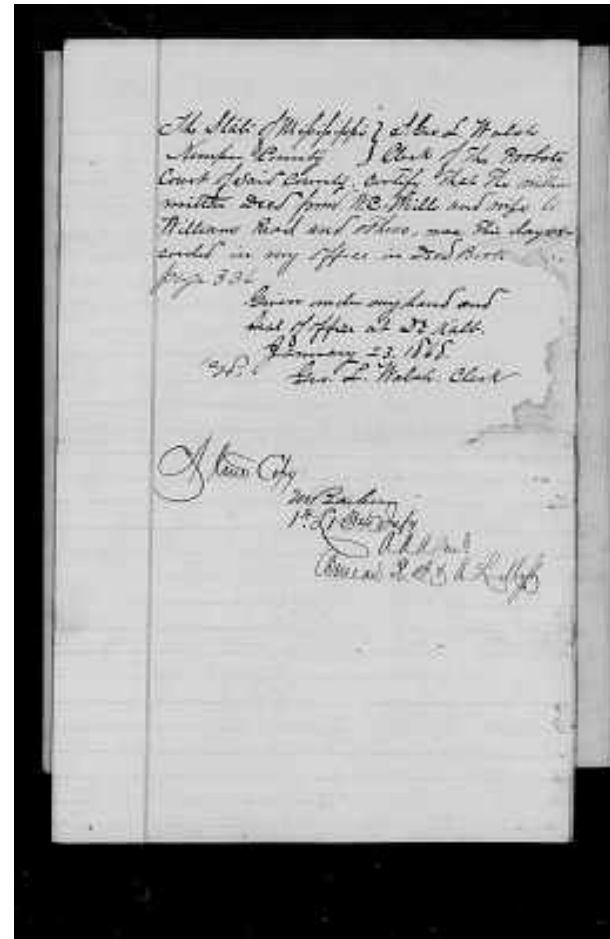 The State of Mississippi } I Geo L Walsh
Kemper County } Clerk of the Probate
Court of said County, certify that the within
written Deed from W.C. Mills and wife to
Williams Read and others, was this day re-
corded in my office in Deed Book
page 334
Given under my hand and
Seal of office at De Kalb.
January 23, 1868
Geo. L. Walsh Clerk
A True Copy
1st Lt
Bureau R. F. & A. L. Miss